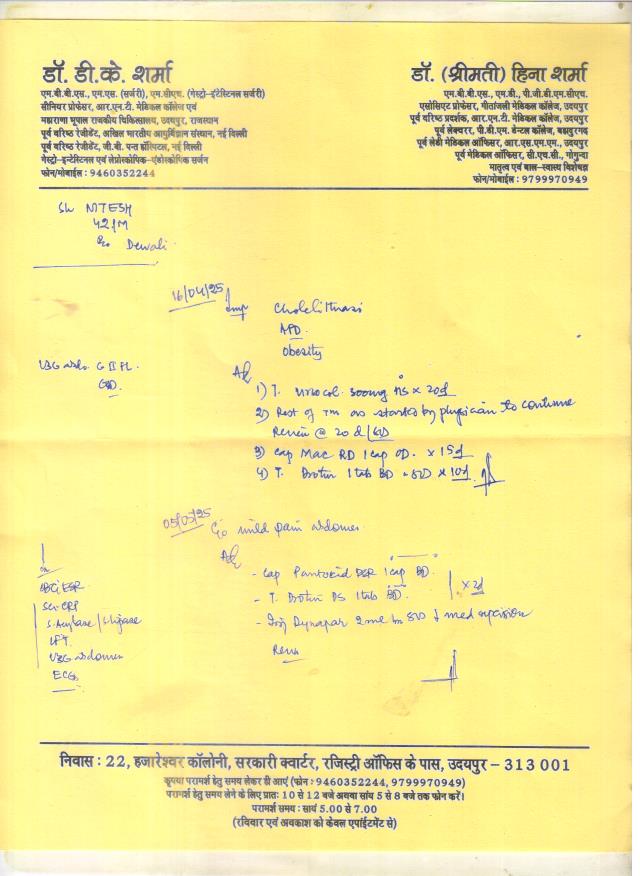 डॉ. डी.के. शर्मा
एम.बी.बी.एस., एम.एस. (सर्जरी), एम.सीएच. (गेस्ट्रो-इंटेस्टिनल सर्जरी)
सीनियर प्रोफेसर, आर.एन.टी. मेडिकल कॉलेज एवं
महाराणा भूपाल राजकीय चिकित्सालय, उदयपुर, राजस्थान
पूर्व वरिष्ठ रेजीडेंट, अखिल भारतीय आयुर्विज्ञान संस्थान, नई दिल्ली
पूर्व वरिष्ठ रेजीडेंट, जी.बी. पन्त हॉस्पिटल, नई दिल्ली
गेस्ट्रो-इन्टेस्टिनल एवं लेप्रोस्कोपिक-एंडोस्कोपिक सर्जन
फोन/मोबाईल : 9460352244
डॉ. (श्रीमती) हिना शर्मा
एम.बी.बी.एस., एम.डी., पी.जी.डी.एम.सीएच.
एसोसिएट प्रोफेसर, गीतांजली मेडिकल कॉलेज, उदयपुर
पूर्व वरिष्ठ प्रदर्शक, आर.एन.टी. मेडिकल कॉलेज, उदयपुर
पूर्व लेक्चरर, पी.डी.एम. डेन्टल कॉलेज, बहादुरगढ़
पूर्व लेडी मेडिकल ऑफिसर, आर.एस.एम.एम., उदयपुर
पूर्व मेडिकल ऑफिसर, सी.एच.सी., गोगुन्दा
मातृत्व एवं बाल-स्वास्थ्य विशेषज्ञ
फोन/मोबाईल : 9799970949
Sh NITESH
42/M
Dewali
16/04/25
Imp Cholelithiasis
APD
Obesity
USG abdo. G II FL
GBD
Adv
1) T. Urso col. 300mg HS x 20d
2) Rest of Tm as started by physician to continue
Review @ 20 d/
3) Cap Mac RD 1 cap OD. x 15d
4) T. Drotin 1 tab BD - x 10d
05/05/25
C/o mild pain abdomen
Adv
- Cap Pantocid DSR 1 cap BD.
- T. Drotin DS 1 tab BD.
x 2d
- Inj Dynapar 2ml Im
Review
CBC, ESR
Ser. CRP
S. Amylase / S. lipase
LFT
USG abdomen
ECG
निवास : 22, हजारेश्वर कॉलोनी, सरकारी क्वार्टर, रजिस्ट्री ऑफिस के पास, उदयपुर – 313 001
कृपया परामर्श हेतु समय लेकर ही आएं (फोन : 9460352244, 9799970949)
परामर्श हेतु समय लेने के लिए प्रातः 10 से 12 बजे अथवा सांय 5 से 8 बजे तक फोन करें।
परामर्श समय : सायं 5.00 से 7.00
(रविवार एवं अवकाश को केवल एपांईटमेंट से)